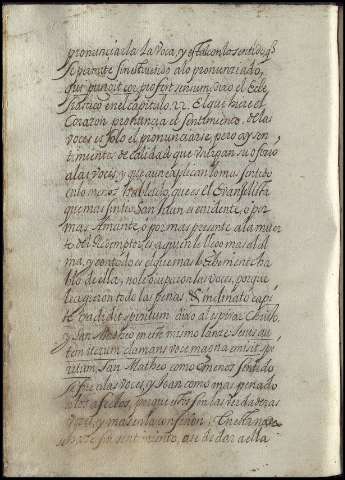 pronunciarla la voca, y estalcon los sentidos q̃
se permite sinistrando a lo pronunciado,
qui pungit cor profert sensum, dixo el Ecle
siastico en el capitulo. 22. El que hiere el
Corazon pronuncia el sentimiento, de las
voces es solo el pronunciarse, pero ay sen
timientos de calidad que usurpan su oficio
a las voces, y que aun explican lo mas sentido
en lo menos hablado, que es el Evangelista
que mas sintio San Juan es evidente, o por
mas Amante, o por mas presente a la muer
te del Redemptor, es a quien le llego mas al al
ma, y con todo es el que mas sobriamente ha
blo de ella, no le ocuparon las voces, porque
le cogieron todo las penas. Et inclinato capi
te tradidit spiritum, dixo al espirar Christo,
y San Matheo en el mismo lance Jesus au
tem iterum clamans voce magna emisit spi
ritum, San Matheo como menos sentido
refiere las voces, y Juan como mas penado
los afectos, porque estos son las verdaderas
voces, y mas en la ocasion. En esta
sentimiento, a de dar a ella